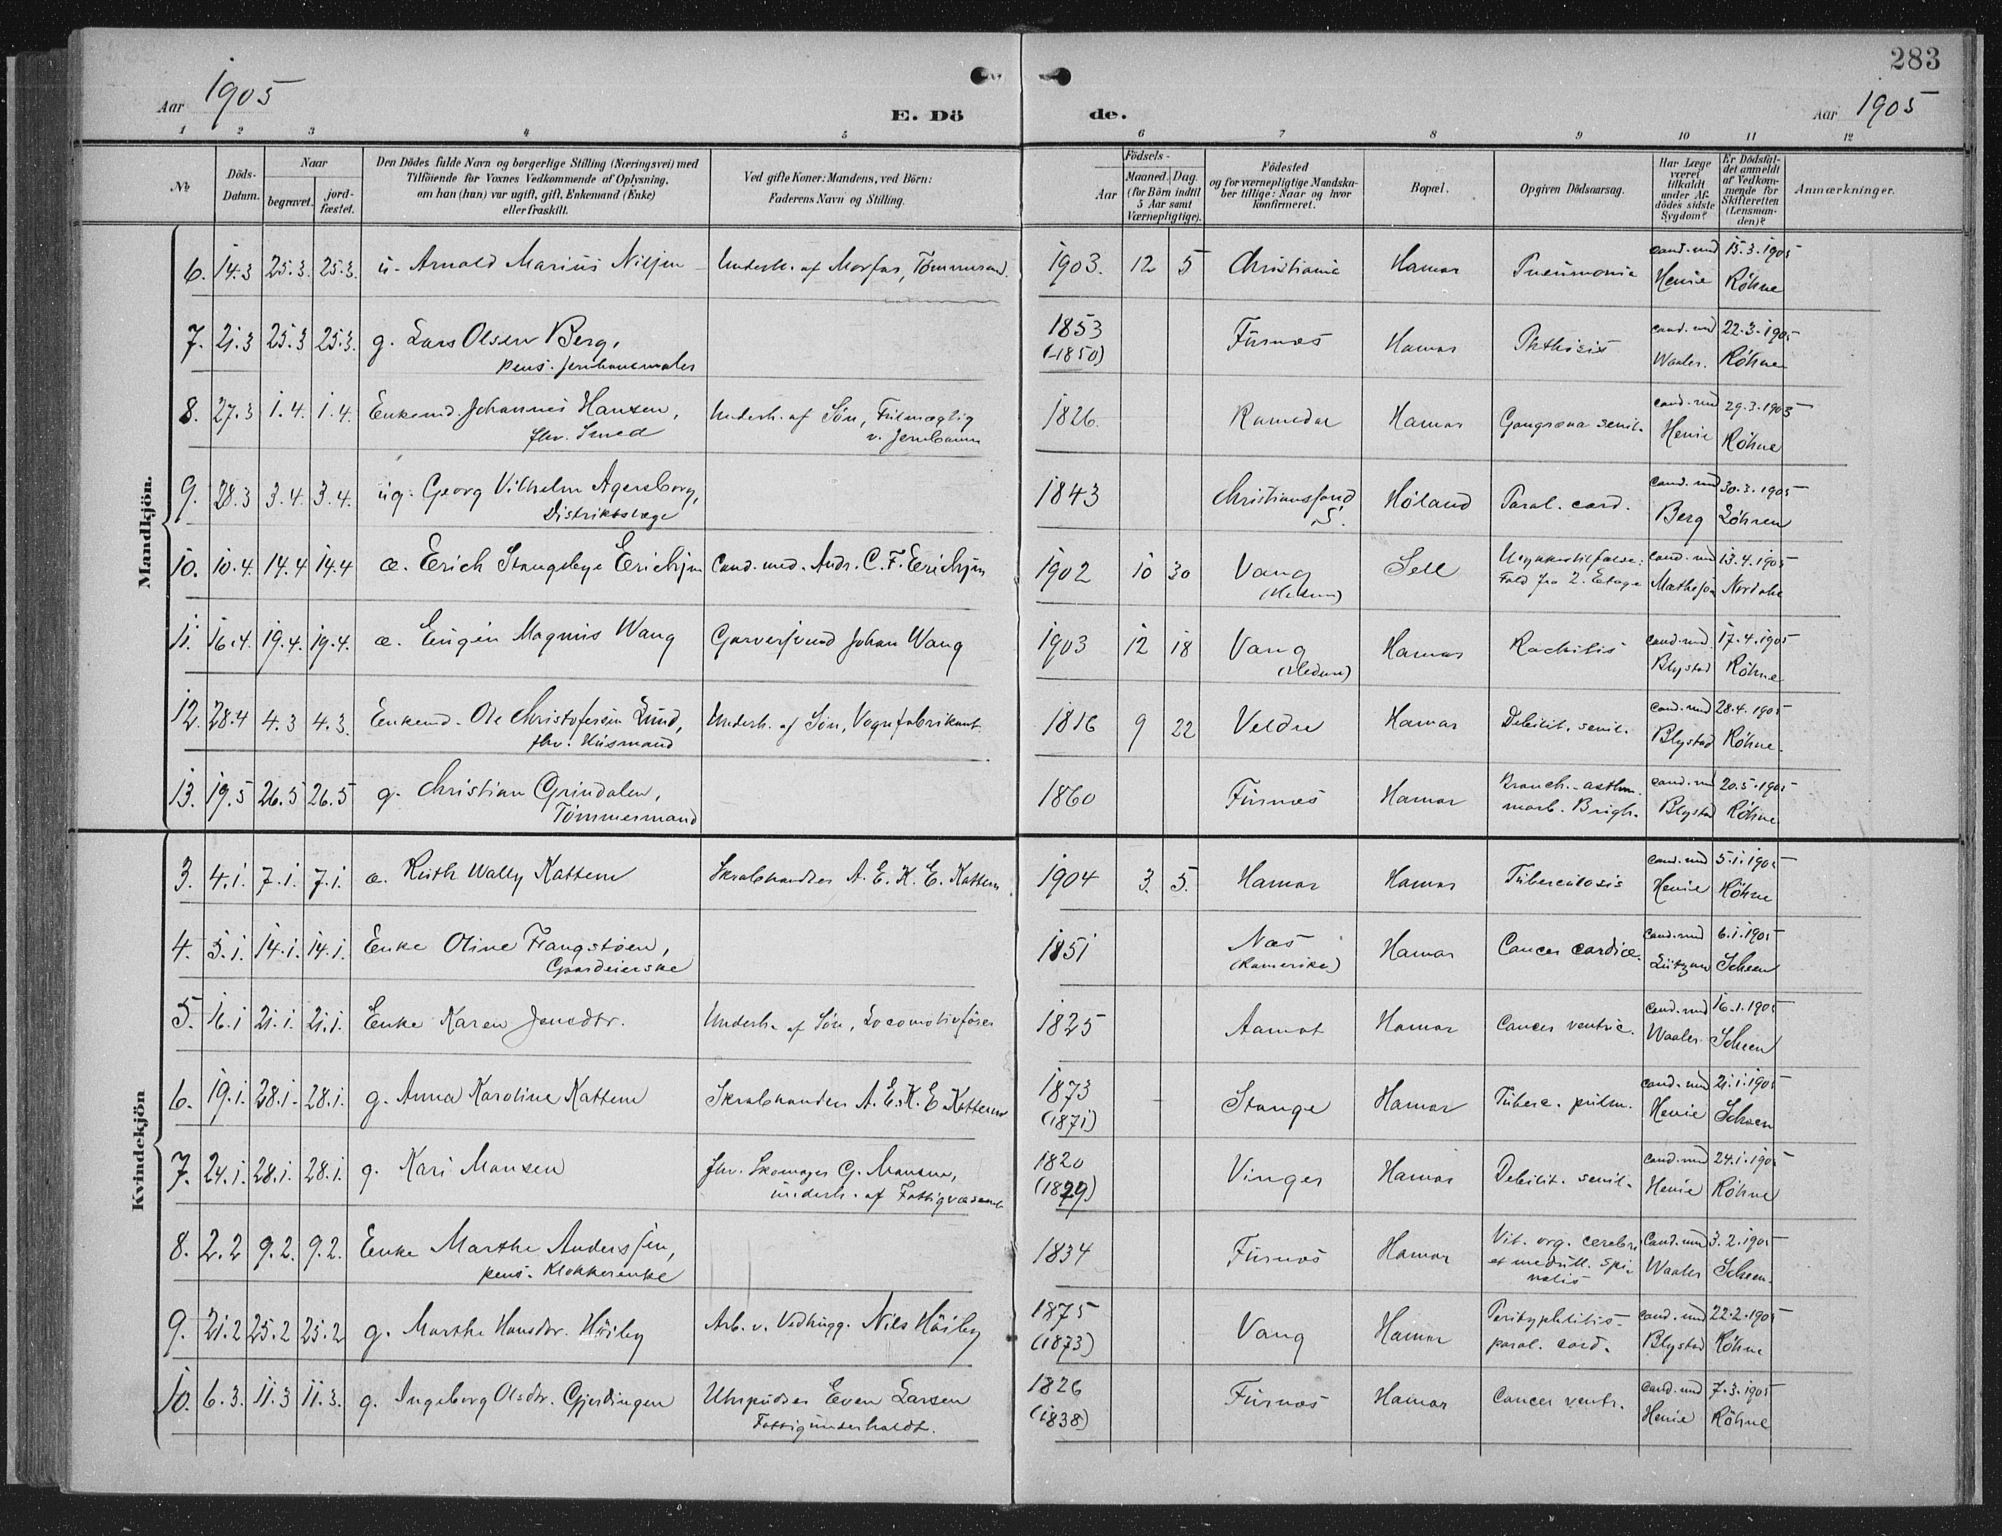 283
Aar 1905
E. Dö de.
Aar 1905
1 2 3 4 5 6 7 8 9 10 11 12
No
Döds-Datum.
Naar
begravet.
jord-fæstet.
Den Dödes fulde Navn og borgerlige Stilling (Næringsvei) med
Tilföiende for Voxnes Vedkommende af Oplysning,
om han (hun) var ugift, gift, Enkemand (Enke)
eller fraskilt.
Ved gifte Koner: Mandens, ved Börn:
Faderens Navn og Stilling.
Födsels-
Aar
Maaned. Dag.
(for Börn indtil
5 Aar samt
Værnepligtige).
Födested
og for værnepligtige Mandska-
ber tillige: Naar og hvor
konfirmeret.
Bopæl.
Opgiven Dödsaarsag.
Har Læge
været
tilkaldt
under Af-
dödes sidste
Sygdom?
Er Dödsfal-
det anmeldt
af Vedkom-
mende for
Skifteretten
(Lensman-
den)?
Anmærkninger.
Mandkjön.
6. 14.3 25.3. 25.3. u. Arnold Marius Nilsen Underh. af Morfar, Tømmermand. 1903. 12 5 Christiania Hamar Pneumonie cand. med Henie 15.3.1905 Röhne
7. 21.3 25.3 25.3. g. Lars Olsen Berg, 1853 Furnæs Hamar Phthisis cand. med 22.3.1905
pens. Jernbanemaler (1850) Waaler. Röhne
8. 27.3 1.4. 1.4. Enkemd. Johannes Hansen, Underh. af Søn, Fuldmægtig 1826. Romedal Hamar Gangræna senil. cand. med 29.3.1905
fhv. Smed v. Jernbanen Henie Röhne
9. 28.3 3.4. 3.4. ug. Georg Vilhelm Agersborg, 1843 Christianssand Höland Paral. cord. cand. med 30.3.1905
Distriktslæge S. Berg
10. 10.4. 14.4 14.4 æ. Erich Stangebye Erichsen Cand. med. Andr. C. F. Erichsen 1902 10 30 Vang Sell Ulykkestilfælde: cand. med 13.4.1905
(Hedem) Fald fra 2. Etage
11. 16.4. 19.4. 19.4. æ. Eugen Magnus Wang Garversvend Johan Wang 1903 12 18 Vang Hamar Rachitis cand. med. 17.4.1905
(Hedem) Blystad Röhne
12. 28.4 4.3 4.3. Enkemd. Ole Christofersen Lund, Underh. af Søn, Vognfabrikant. 1816 9 22 Veldre Hamar Debilit. senil. cand. med 28.4.1905
fhv. Husmand Blystad Röhne.
13. 19.5 26.5 26.5 g. Christian Grindalen, 1860 Furnæs Hamar Bronch. asthm. cand. med 20.5.1905
Tømmermand morb. Brigh. Blystad Röhne
Kvindekjön
3. 4.1. 7.1. 7.1. æ. Ruth Wally Kattem Skrabhandler A. E. K. E. Kattem 1904 3. 5. Hamar Hamar Tuberculosis cand. med 5.1.1905
Henie Röhne
4. 5.1. 14.1. 14.1. Enke Oline Frangstøen, 1851 Næs Hamar Cancer cardiæ. cand. med 6.1.1905
Gaardeierske (Romerike) Lützow Scheen
5. 16.1 21.1. 21.1. Enke Karen Jensdtr. Underh. af Søn, Locomotivfører 1825 Aamot Hamar Cancer ventric. cand. med 16.1.1905
Waaler Scheen
6. 19.1. 28.1. 28.1. g. Anna Karoline Kattem Skrabhandler A. E. K. E. Kattem 1873 Stange Hamar Tuberc. pulm. cand. med 21.1.1905
(1871) Henie Scheen
7. 24.1. 28.1. 28.1. g. Kari Monsen fhv. Skomager G. Monsen, 1820 Vinger Hamar Debilit. senil. cand. med 24.1.1905
underh. af Fattigvæsenet (1829) Henie Röhne
8. 2.2 9.2. 9.2. Enke Marthe Anderssen, 1834 Furnæs Hamar Vit. org. cerebri Cand. med 3.2.1905
pens. Klokkerenke et medull. spi- Waaler Scheen.
nalis
9. 21.2 25.2 25.2 g. Marthe Hansdtr. Höiby Arb. v. Vedhugg. Nils Höiby 1875 Vang Hamar Perityphlitis- cand. med 22.2.1905
(1873) paral. cord. Blystad Röhne
10. 6.3. 11.3 11.3. g. Ingeborg Olsdtr. Gjerdingen Uhrpudser Even Larsen 1826 Furnæs Hamar Cancer ventr. cand. med 7.3.1905
Fattigunderholdt. (1838) Henie Röhne